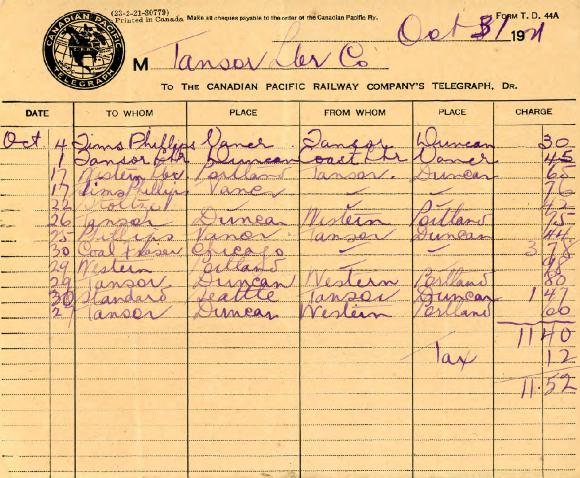 (23-2-21-80779)
Printed in Canada
Make all cheques payable to the order of the Canadian Pacific Ry.
FORM T. D. 44A
CANADIAN PACIFIC TELEGRAPH
Oct 31 1921
M Tansor Lbr Co
TO THE CANADIAN PACIFIC RAILWAY COMPANY'S TELEGRAPH, DR.
DATE TO WHOM PLACE FROM WHOM PLACE CHARGE
Oct 4 Tims Phillips Vancr Tansor Duncan 30
1 Tansor Lbr Duncan Coast Lbr Vancr 45
17 Western Lbr Portland Tansor. Duncan 60
17 Tims Phillips Vancr 76
22 42
26 Tansor Duncan Western Portland 75
Phillips Vancr Tansor Duncan 44
30 Coal Chicago 3 78
29 Western Portland
29 Tansor Duncan Western Portland 80
30 Standard Seattle Tansor Duncan 1 47
27 Tansor Duncan Western Portland 60
11 40
Tax 12
11.52